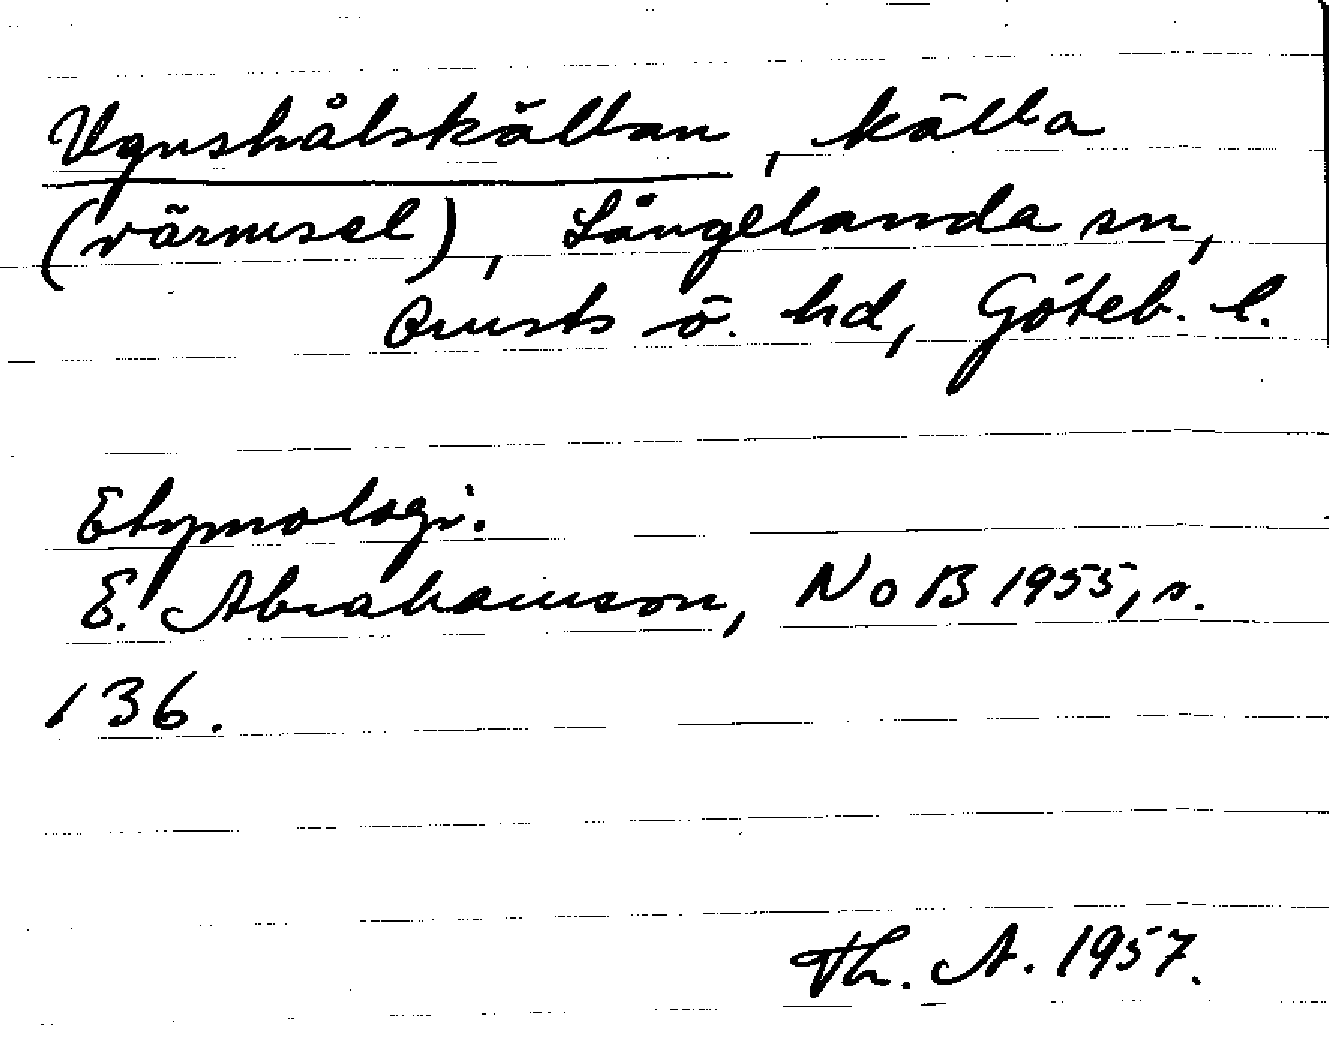 Ugnshålskällan, källa
(värmsel), Långelanda sn,
Orusts ö. hd, Göteb. l.
Etymologi.
E. Abrahamson, NoB 1955, s.
136.
Th. A. 1957.